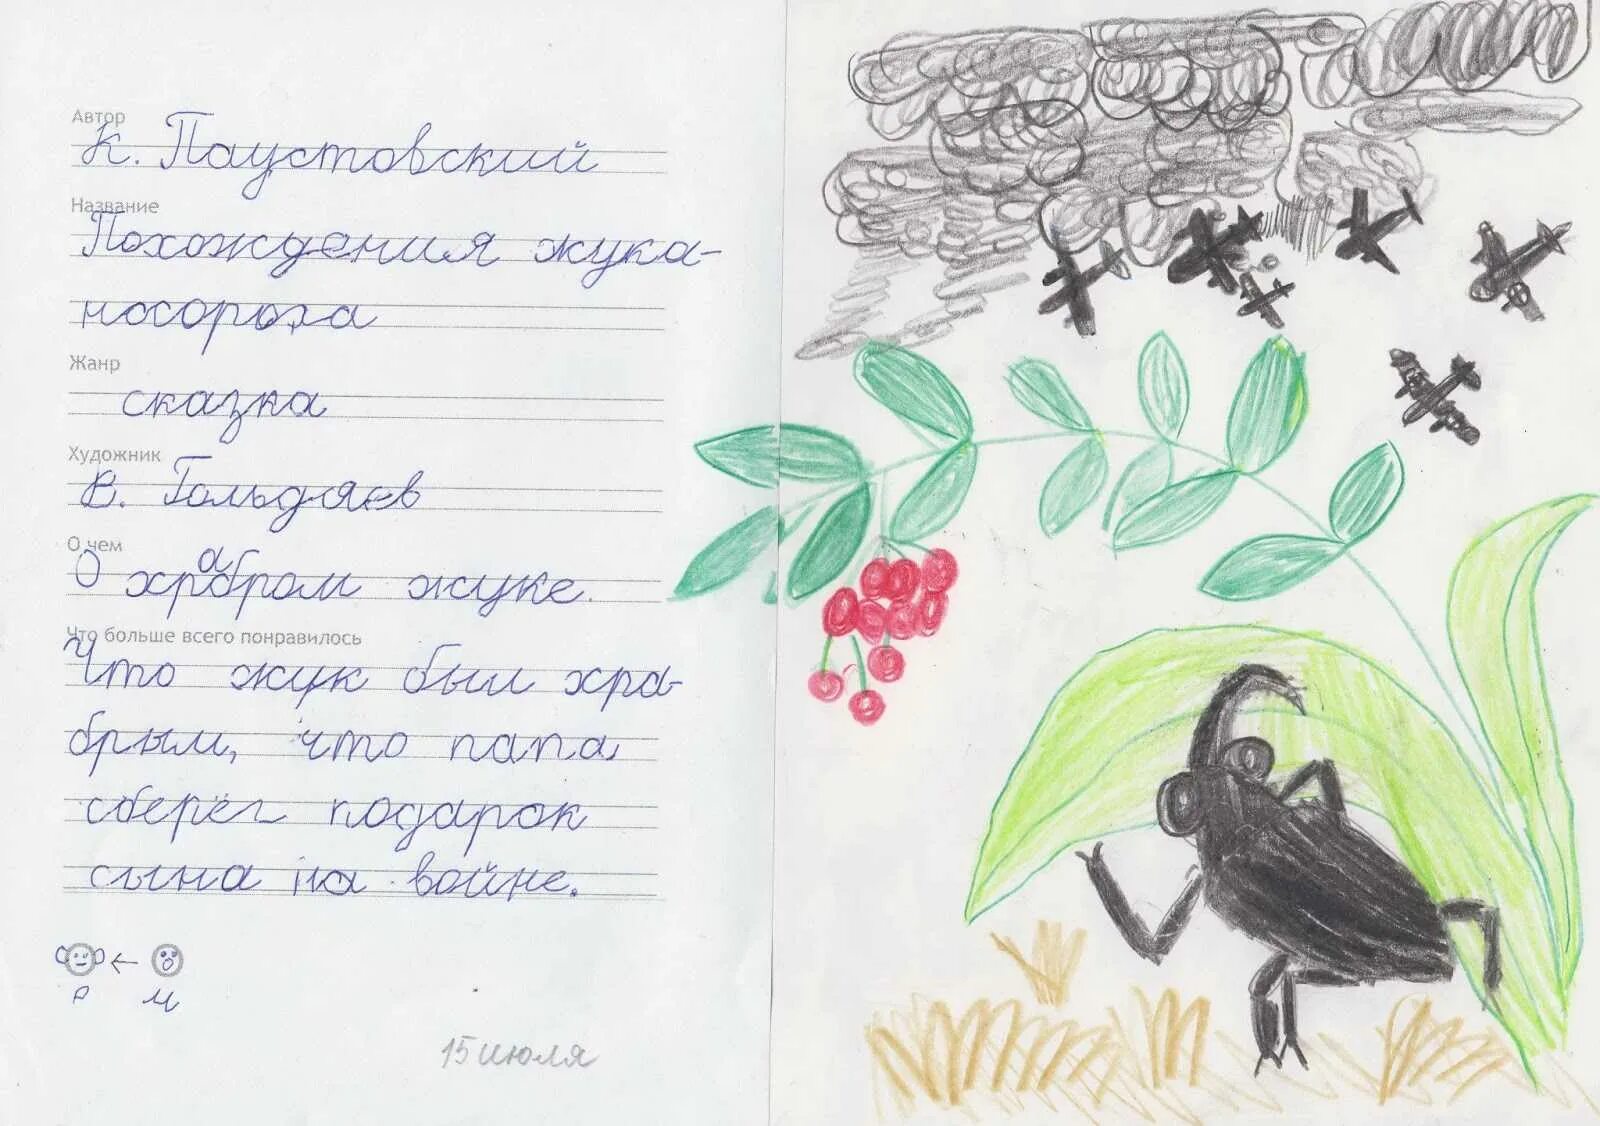 Автор
К. Паустовский
Название
Похождения жука-
носорога
Жанр
сказка
Художник
В. Гольдяев
О чем
О храбром жуке.
Что больше всего понравилось
Что жук был хра-
брым, что папа
сберёг подарок
сына на войне.
Р М
15 июля